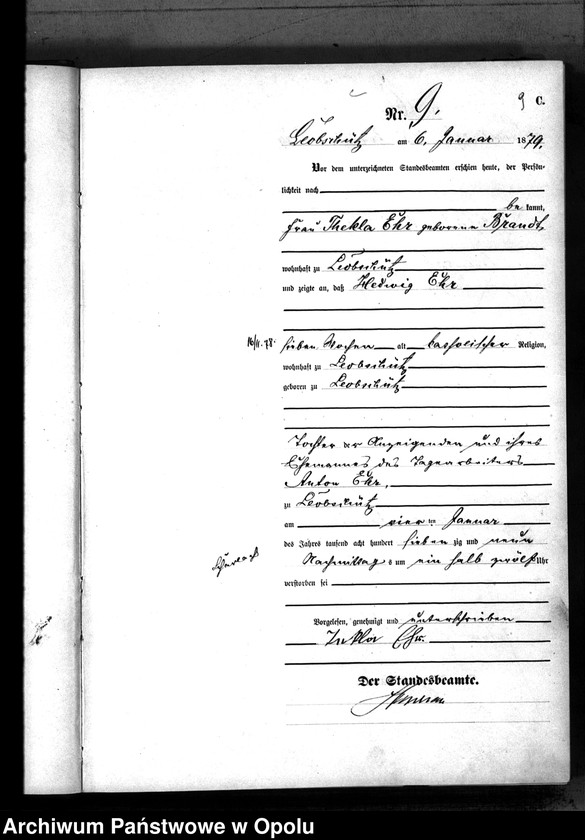 9 C.
Nr. 9.
Leobschütz am 6. Januar 1879.
Vor dem unterzeichneten Standesbeamten erschien heute, der Persön-
lichkeit nach
be kannt,
Frau Thekla Ehr geborene Brandt,
wohnhaft zu Leobschütz
und zeigte an, daß Hedwig Ehr
16/11.78. sieben Wochen alt katholischer Religion,
wohnhaft zu Leobschütz
geboren zu Leobschütz
Tochter der Anzeigenden und ihres
Ehemannes des Tagearbeiters
Anton Ehr,
zu Leobschütz
am vier ten Januar
des Jahres tausend acht hundert sieben zig und neun
Nachmittags um ein halb zwölf Uhr
verstorben sei
Vorgelesen, genehmigt und unterschrieben
Tekla Ehr.
Der Standesbeamte.
Archiwum Państwowe w Opolu